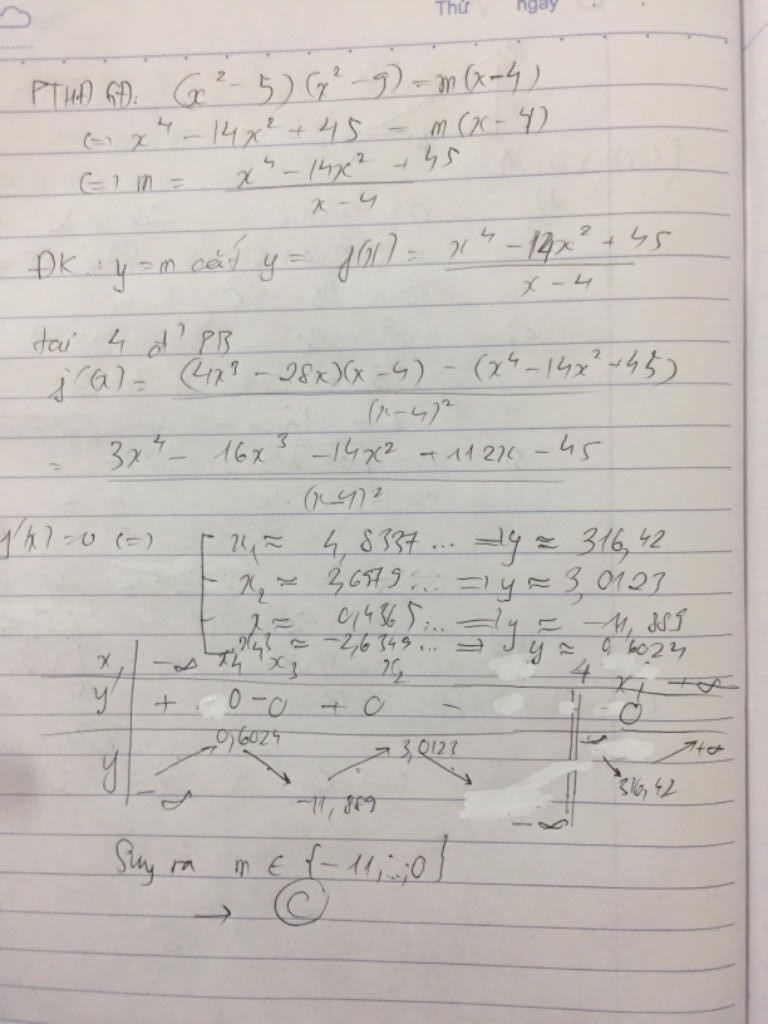 Thứ ngày
PTHĐGĐ: (x² - 5)(x² - 9) = m(x - 4)
(=) x⁴ - 14x² + 45 = m(x - 4)
(=) m = x⁴ - 14x² + 45 / x - 4
ĐK: y = m cắt y = f(x) = x⁴ - 14x² + 45 / x - 4
tại 4 đ' PB
f'(x) = (4x³ - 28x)(x - 4) - (x⁴ - 14x² + 45) / (x - 4)²
= 3x⁴ - 16x³ - 14x² + 112x - 45 / (x - 4)²
f'(x) = 0 (=) x₁ ≈ 4,8337... => y ≈ 316,42
x₂ ≈ 3,6579... => y ≈ 3,0123
x₃ ≈ 0,4365... => y ≈ -11,889
x₄ ≈ -2,6349... => y ≈ 0,6024
x -∞ x₄ x₃ x₂ 4 x₁ +∞
y' + 0 - 0 + 0 - 0
0,6024 3,0123 +∞ +∞
y
-∞ -11,889 -∞ 316,42
Suy ra m ∈ {-11,...,0}
→ C